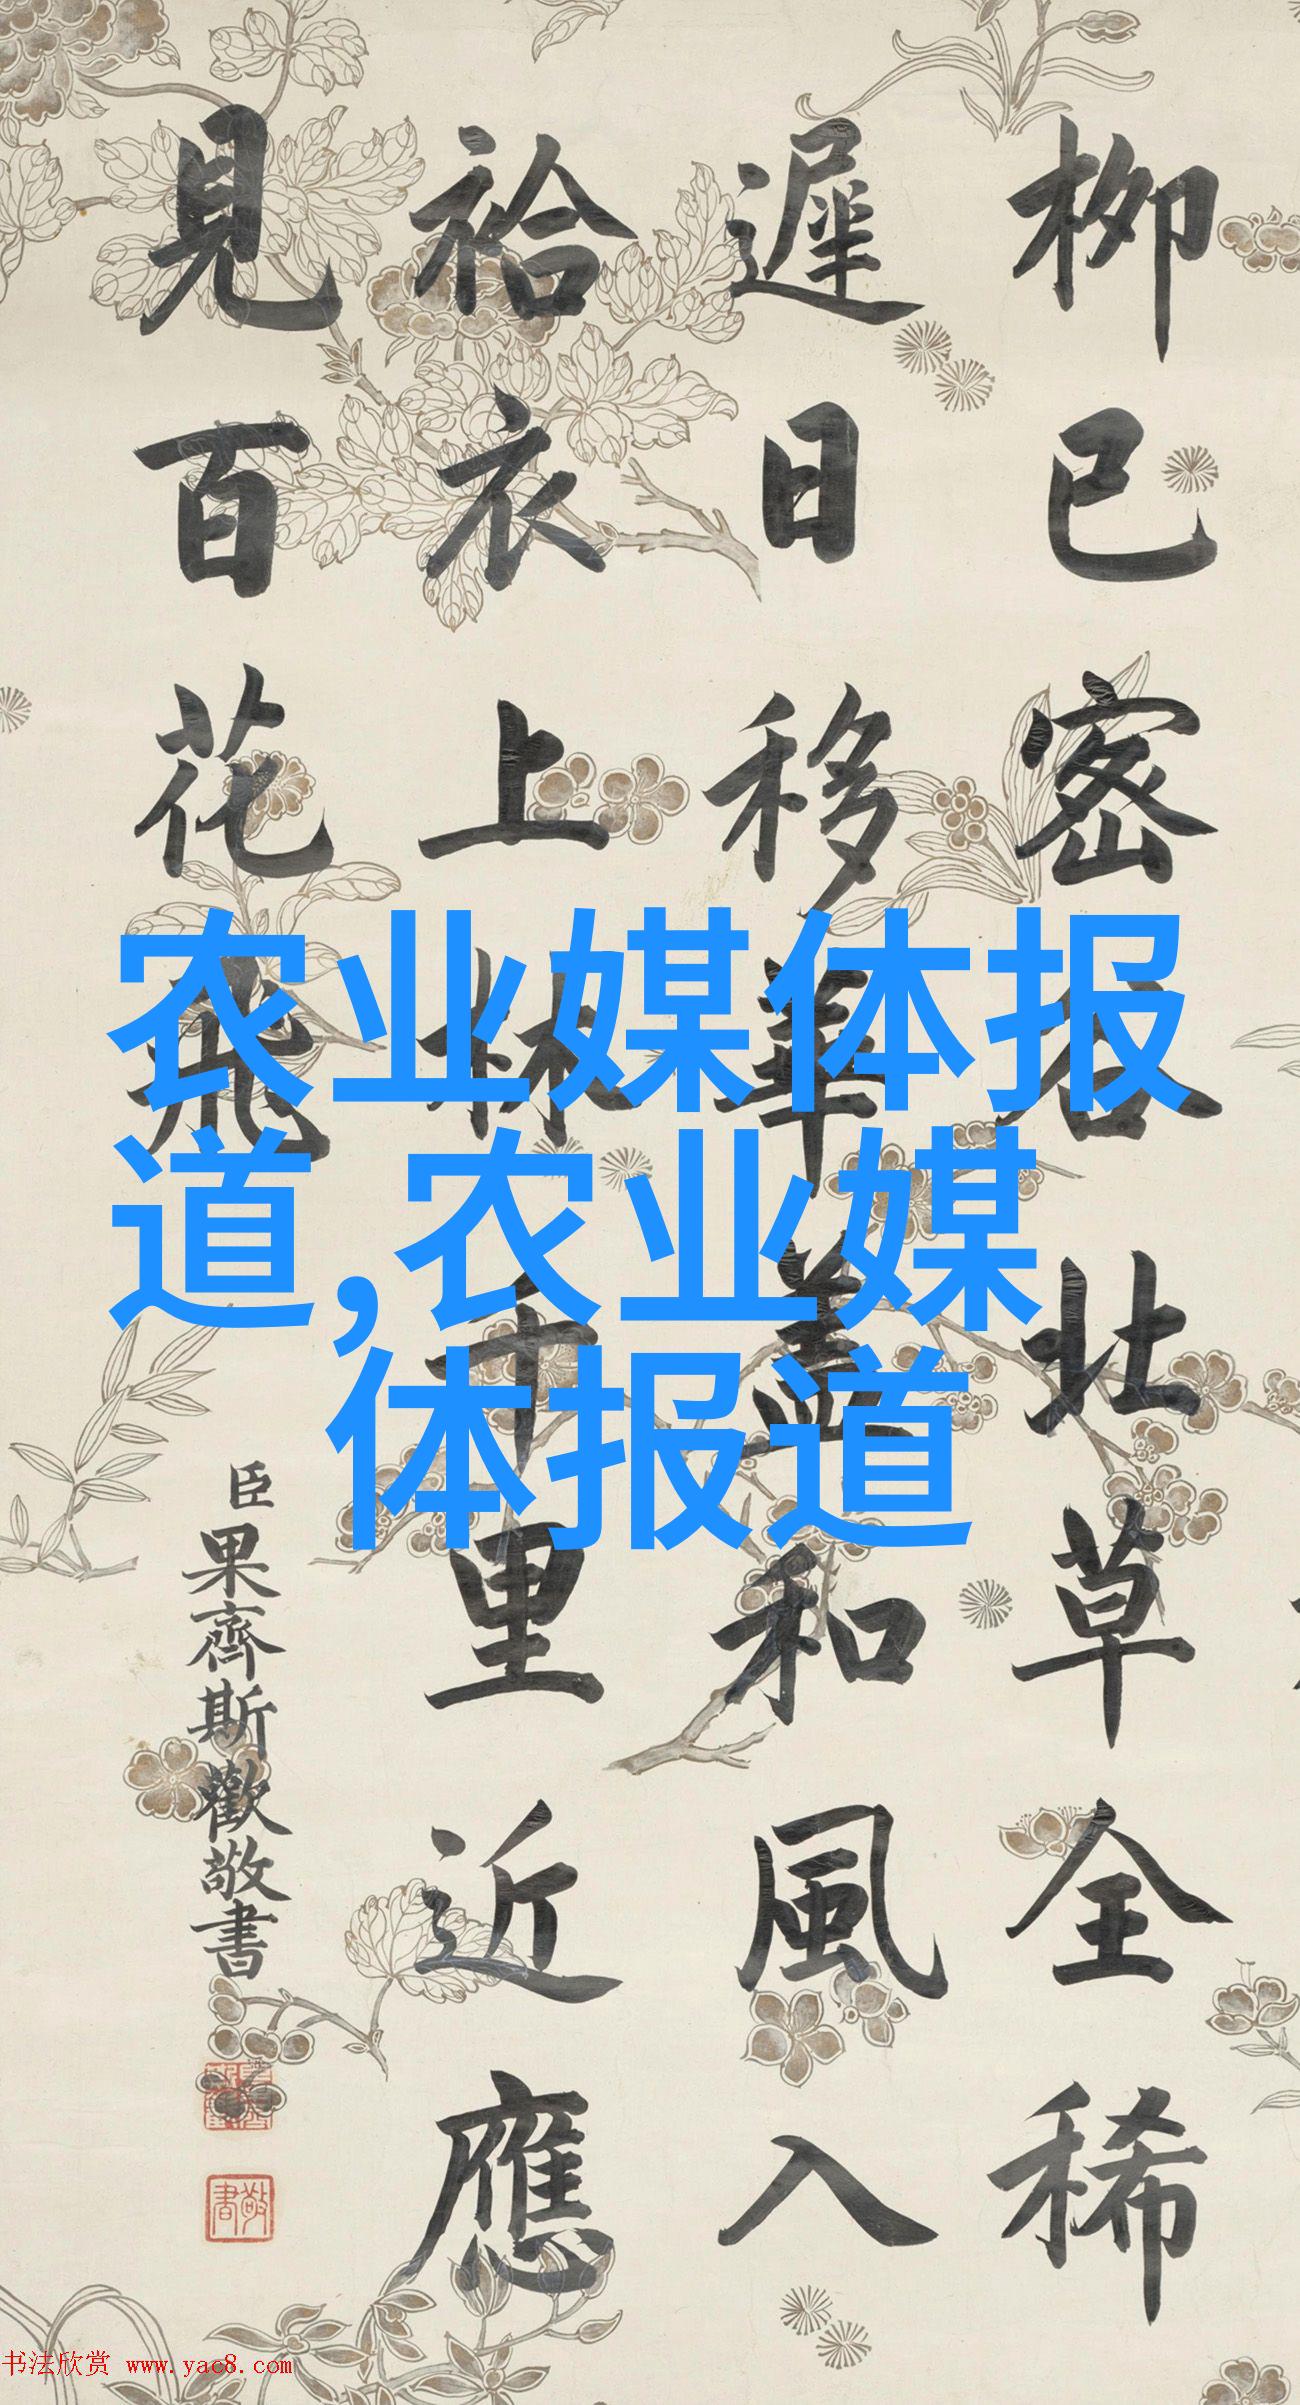 柳已密谷北草全稀
遲日移華蓋和風入
袷衣上林千里近應
見百花飛
臣果齊斯歡敬書
敬書
农业媒体报
道,农业媒
体报道
书法欣赏 www.yac8.com